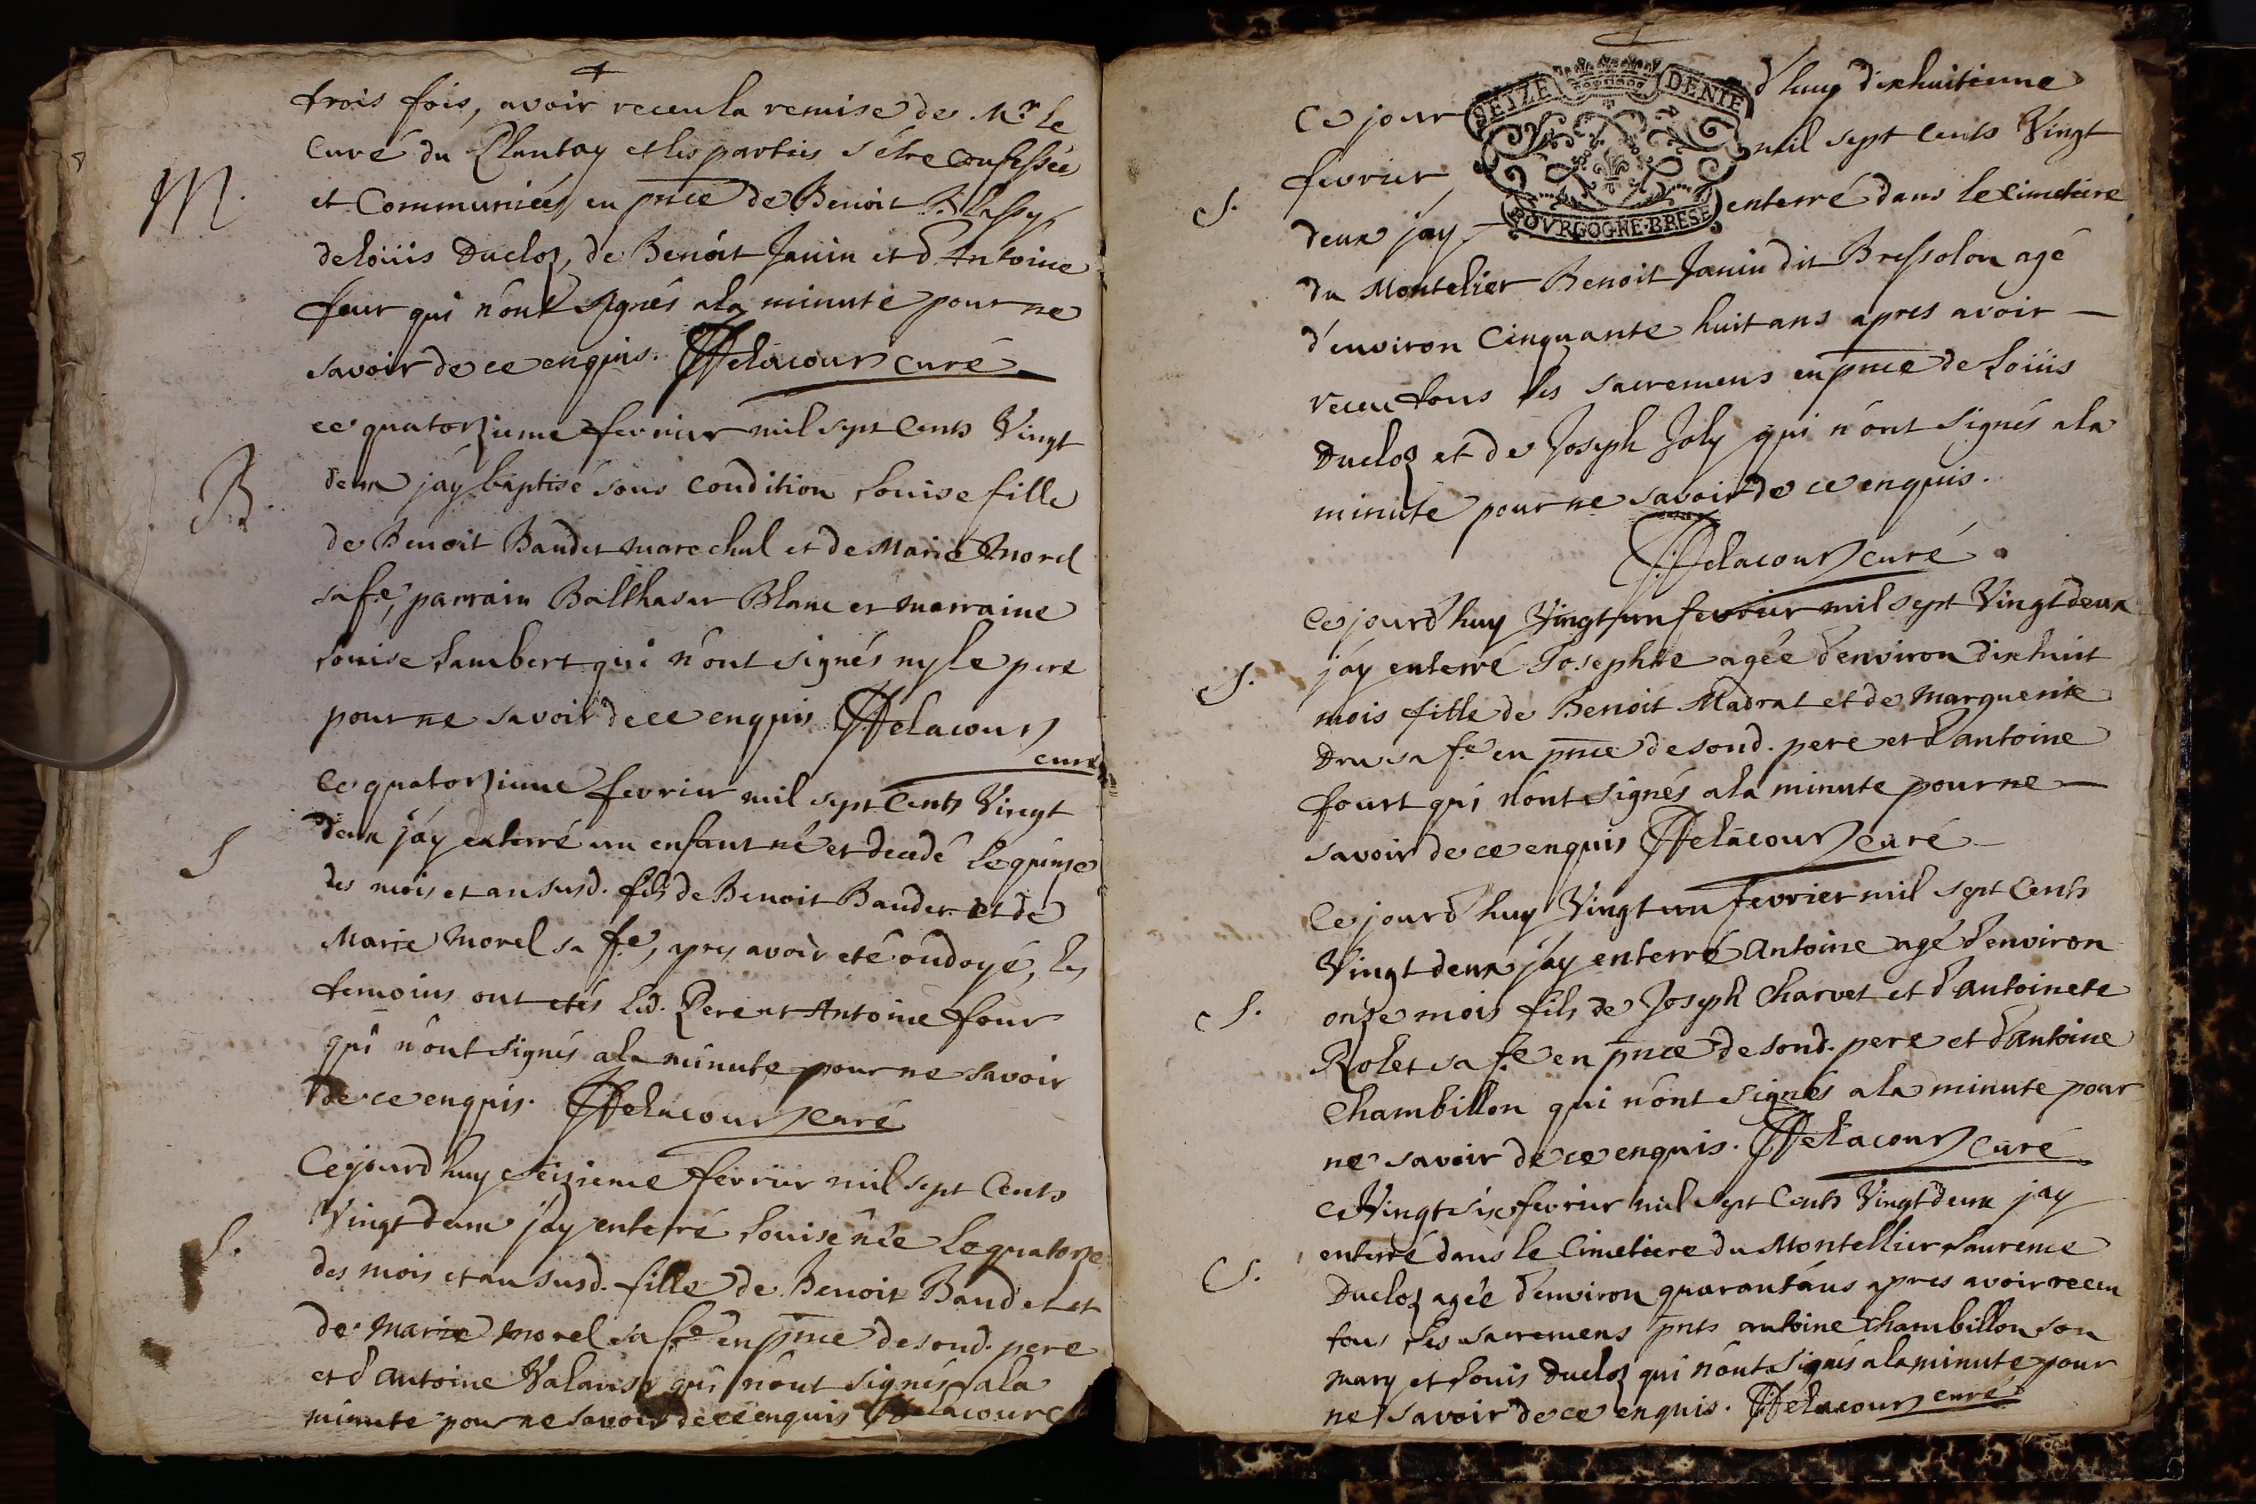 trois fois, avoir receu la remise de Mr le
Curé du Plantay et les parties s'être Confessées
M.
et Communiées en pnce de Benoit Blassy,
de loüis Ducloz, de Benoit Janin et d'Antoine
four qui n'ont signés a la minute pour ne
savoir de ce enquis. Delacour curé
ce quatorzieme fevrier mil sept Cents Vingt
B
deux j'ay baptisé sous condition Louise fille
de Benoit Baudet marechal et de Marie Morel
sa fe, parrain Balthasar Blanc et marraine
Louise Lambert qui n'ont signés ny le pere
pour ne savoir de ce enquis Delacour
curé
Ce quatorzieme fevrier mil sept Cents Vingt
S
deux j'ay enterré un enfant né et decedé le quinze
des mois et an susd. fils de Benoit Baudet et de
Marie Morel sa fe, apres avoir eté ondoyé, les
temoins ont etés led. Pere et Antoine four
qui n'ont signés a la minute pour ne savoir
de ce enquis. Delacour curé
Cejourd'huy seizieme fevrier mil sept Cents
S.
Vingt deux j'ay enterré Louise née le quatorze
des mois et an susd. fille de Benoit Baudet et
de Marie Morel sa fe en pnce de sond. pere
et d'antoine qui n'ont signés a la
minute pour ne savoir de ce enquis Delacour c
SEIZE DENIE
BOVRGOGNE·BRESE
Ce jour d'huy dixhuitieme
fevrier mil sept Cents Vingt
S.
deux j'ay enterré dans le Cimetiere
du Montelier Benoit Janin dit Bressolon agé
d'environ Cinquante huit ans apres avoir
receu tous les sacremens en pnce de Loüis
Ducloz et de Joseph Joly qui n'ont signés a la
minute pour ne savoir de ce enquis.
Delacour curé
Cejourd'huy Vingt un fevrier mil sept Vingt deux
S.
j'ay enterré Josephte agée d'environ dixhuit
mois fille de Benoit Madrat et de Marguerite
Dru sa fe en pnce de sond. pere et d'antoine
fourt qui n'ont signés a la minute pour ne
savoir de ce enquis Delacour curé
Cejourd'huy Vingt un fevrier mil sept Cents
Vingt deux j'ay enterré Antoine agé d'environ
S.
onze mois fils de Joseph Charvet et d'antoinete
Rolet sa fe en pnce de sond. pere et d'antoine
Chambillon qui n'ont signés a la minute pour
ne savoir de ce enquis. Delacour curé
Ce Vingt six fevrier mil sept Cents Vingt deux j'ay
S.
enterré dans le Cimetiere du Montellier Laurence
Ducloz agée d'environ quarant'ans apres avoir receu
tous les sacremens pnts antoine Chambillon son
mary et Louis Ducloz qui n'ont signés a la minute pour
ne savoir de ce enquis. Delacour curé